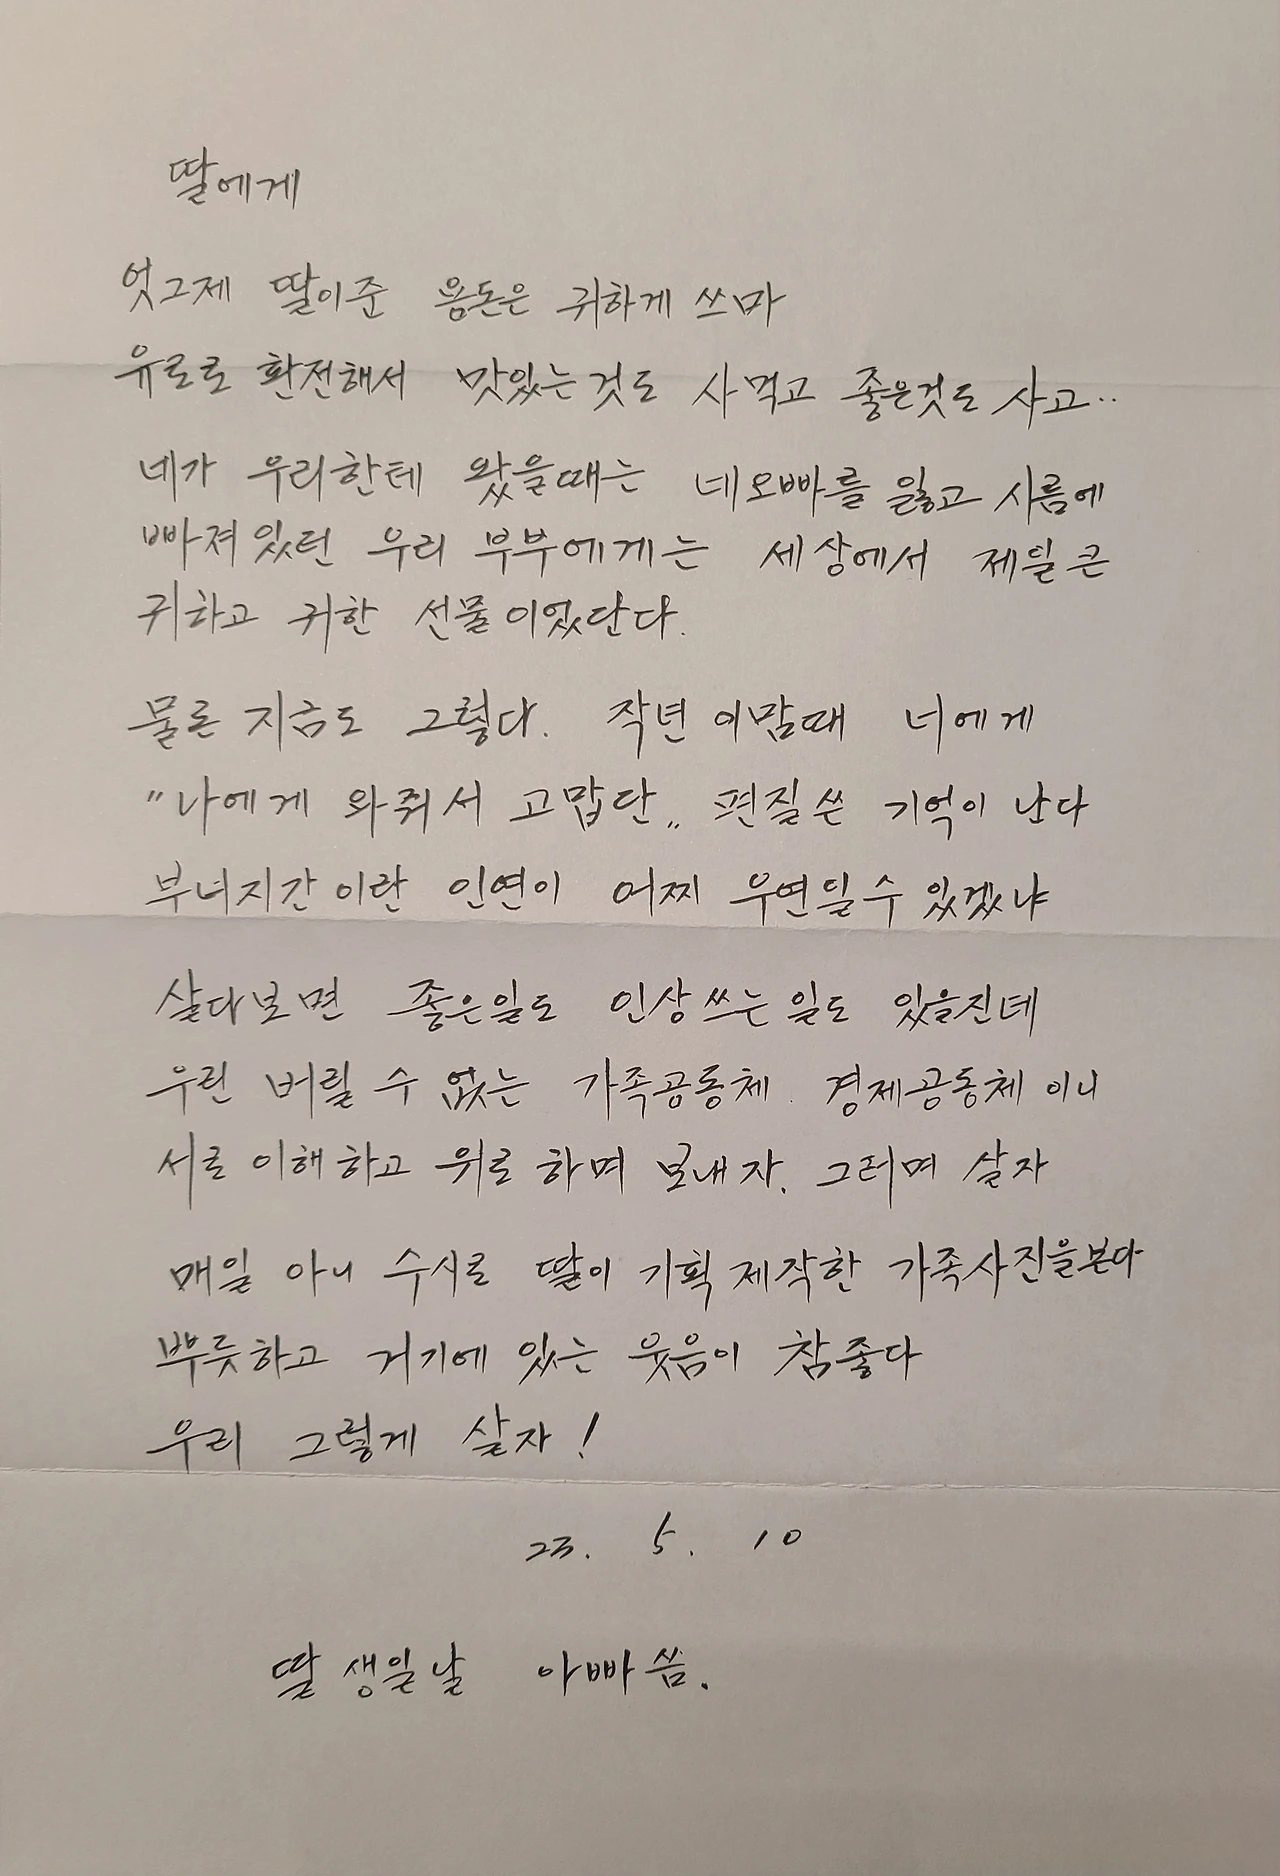 딸에게
엇그제 딸이준 용돈은 귀하게 쓰마
유로로 환전해서 맛있는것도 사먹고 좋은것도 사고..
네가 우리한테 왔을때는 네오빠를 잃고 시름에
빠져있던 우리 부부에게는 세상에서 제일큰
귀하고 귀한 선물이었단다.
물론 지금도 그렇다. 작년 이맘때 너에게
"나에게 와줘서 고맙단" 편질쓴 기억이 난다
부녀지간이란 인연이 어찌 우연일수 있겠냐
살다보면 좋은일도 인상쓰는일도 있을진데
우린 버릴 수 없는 가족공동체. 경제공동체이니
서로 이해하고 위로하며 보내자. 그러며 살자
매일 아니 수시로 딸이 기획제작한 가족사진을본다
뿌듯하고 거기에 있는 웃음이 참좋다
우리 그렇게 살자!
23. 5. 10
딸 생일날 아빠씀.